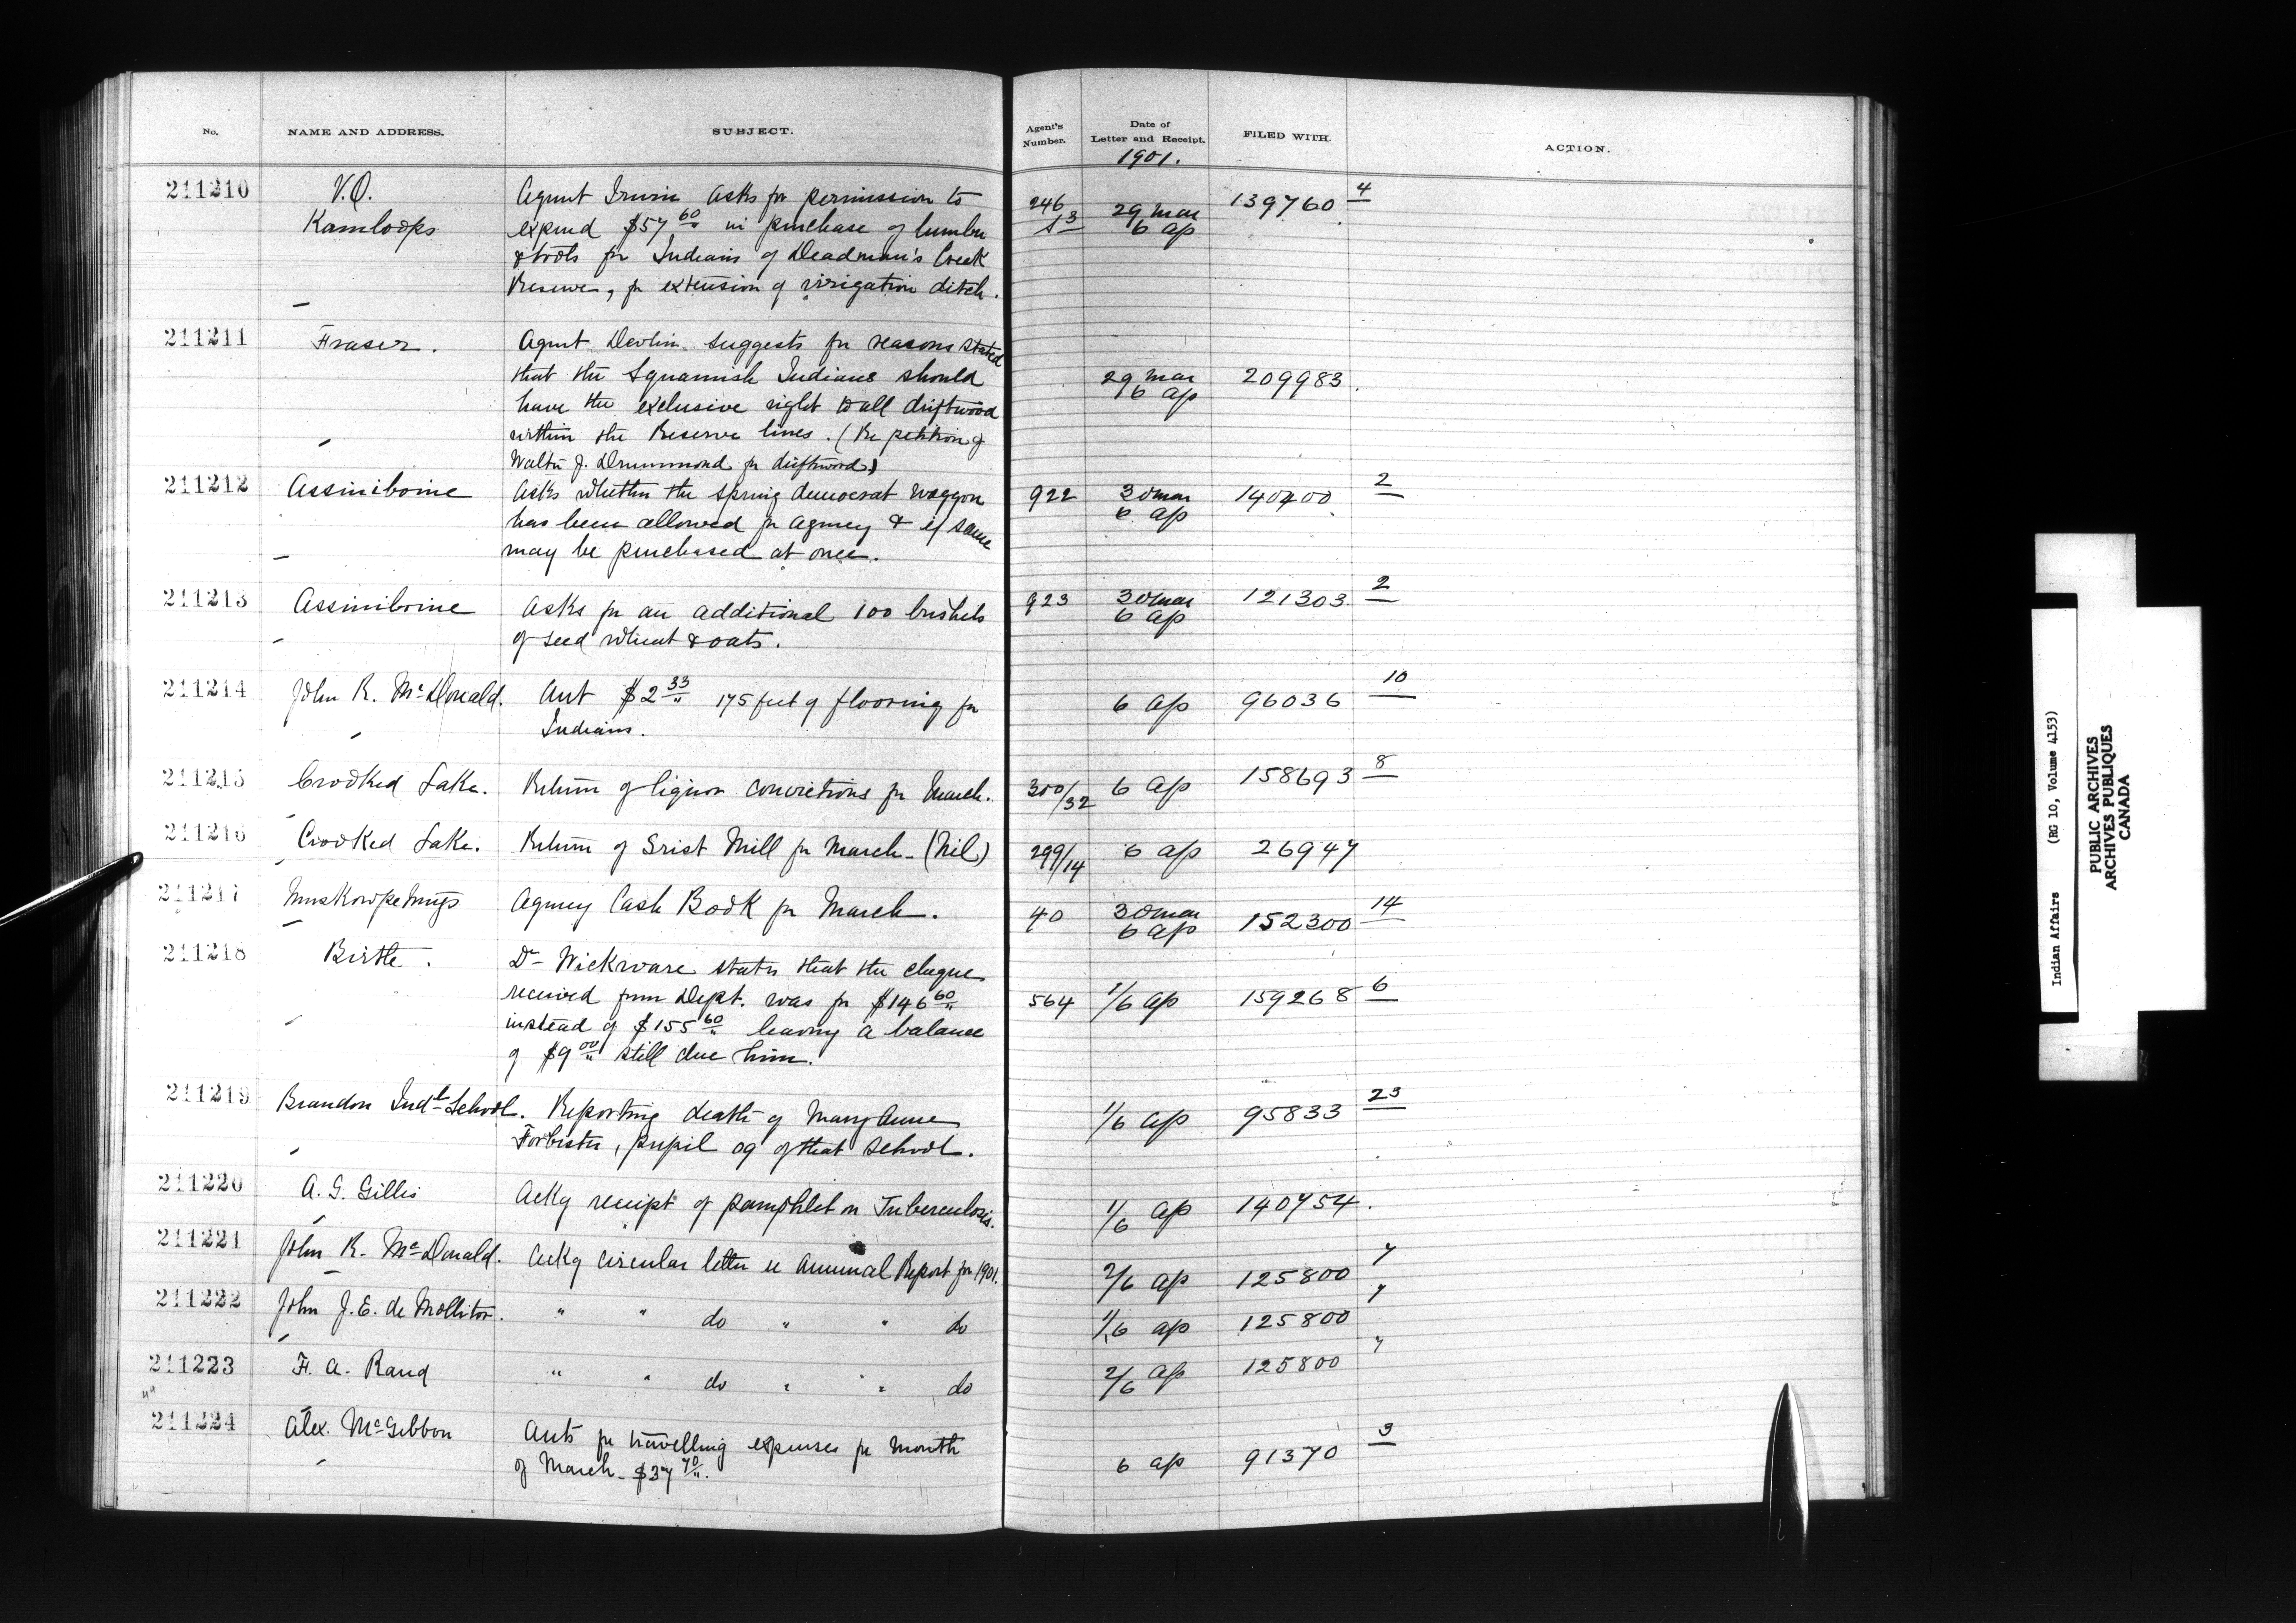 No. NAME AND ADDRESS. SUBJECT. Agent's Number. Date of Letter and Receipt. FILED WITH. ACTION.
1901.
211210 V.O. Agent Irwin asks for permission to 246 29 Mar 139760 4
Kamloops expend $57 60 in purchase of lumber 13 6 Ap
& tools for Indians of Deadman's Creek
Reserve, for extension of irrigation ditch.
211211 Fraser. Agent Devlin suggests for reasons stated
that the Squamish Indians should 29 Mar 209983.
have the exclusive right to all driftwood 6 Ap
within the Reserve lines. (Re petition of
Walter J. Drummond for driftwood)
211212 Assiniboine Asks whether the spring democrat waggon 922 30 Mar 140400 2
has been allowed for Agency & if same 6 Ap
may be purchased at once.
211213 Assiniboine Asks for an additional 100 bushels 923 30 Mar 121303 2
of seed wheat & oats. 6 Ap
211214 John R. McDonald. Act $2 33 175 feet of flooring for 6 Ap 96036 10
Indians.
211215 Crooked Lake. Return of liquor convictions for March. 300/32 6 Ap 158693 8
211216 Crooked Lake. Return of Grist Mill for March - (Nil) 299/14 6 Ap 26947
211217 Muskowpetungs Agency Cash Book for March. 40 30 Mar 152300 14
6 Ap
211218 Birtle. Dr Wickware states that the cheque
received from Dept. was for $146 60 564 1/6 Ap 159268 6
instead of $155 60 leaving a balance
of $9 00 still due him.
211219 Brandon Indl School. Reporting death of Mary Anne 1/6 Ap 95833 23
Forbister, pupil 09 of that School.
211220 A. G. Gillis Ackg receipt of pamphlet on Tuberculosis. 1/6 Ap 140754.
211221 John R. McDonald. Ackg circular letter re Annual Report for 1901. 2/6 Ap 125800 7
211222 John J. E. de Mollitor. " " do " " do 1/6 Ap 125800 7
211223 F. A. Rand " " do " " do 2/6 Ap 125800 7
211224 Alex. McGibbon Acts for travelling expenses for month 6 Ap 91370 3
of March - $37 70.
Indian Affairs (RG 10, Volume 4153)
PUBLIC ARCHIVES
ARCHIVES PUBLIQUES
CANADA